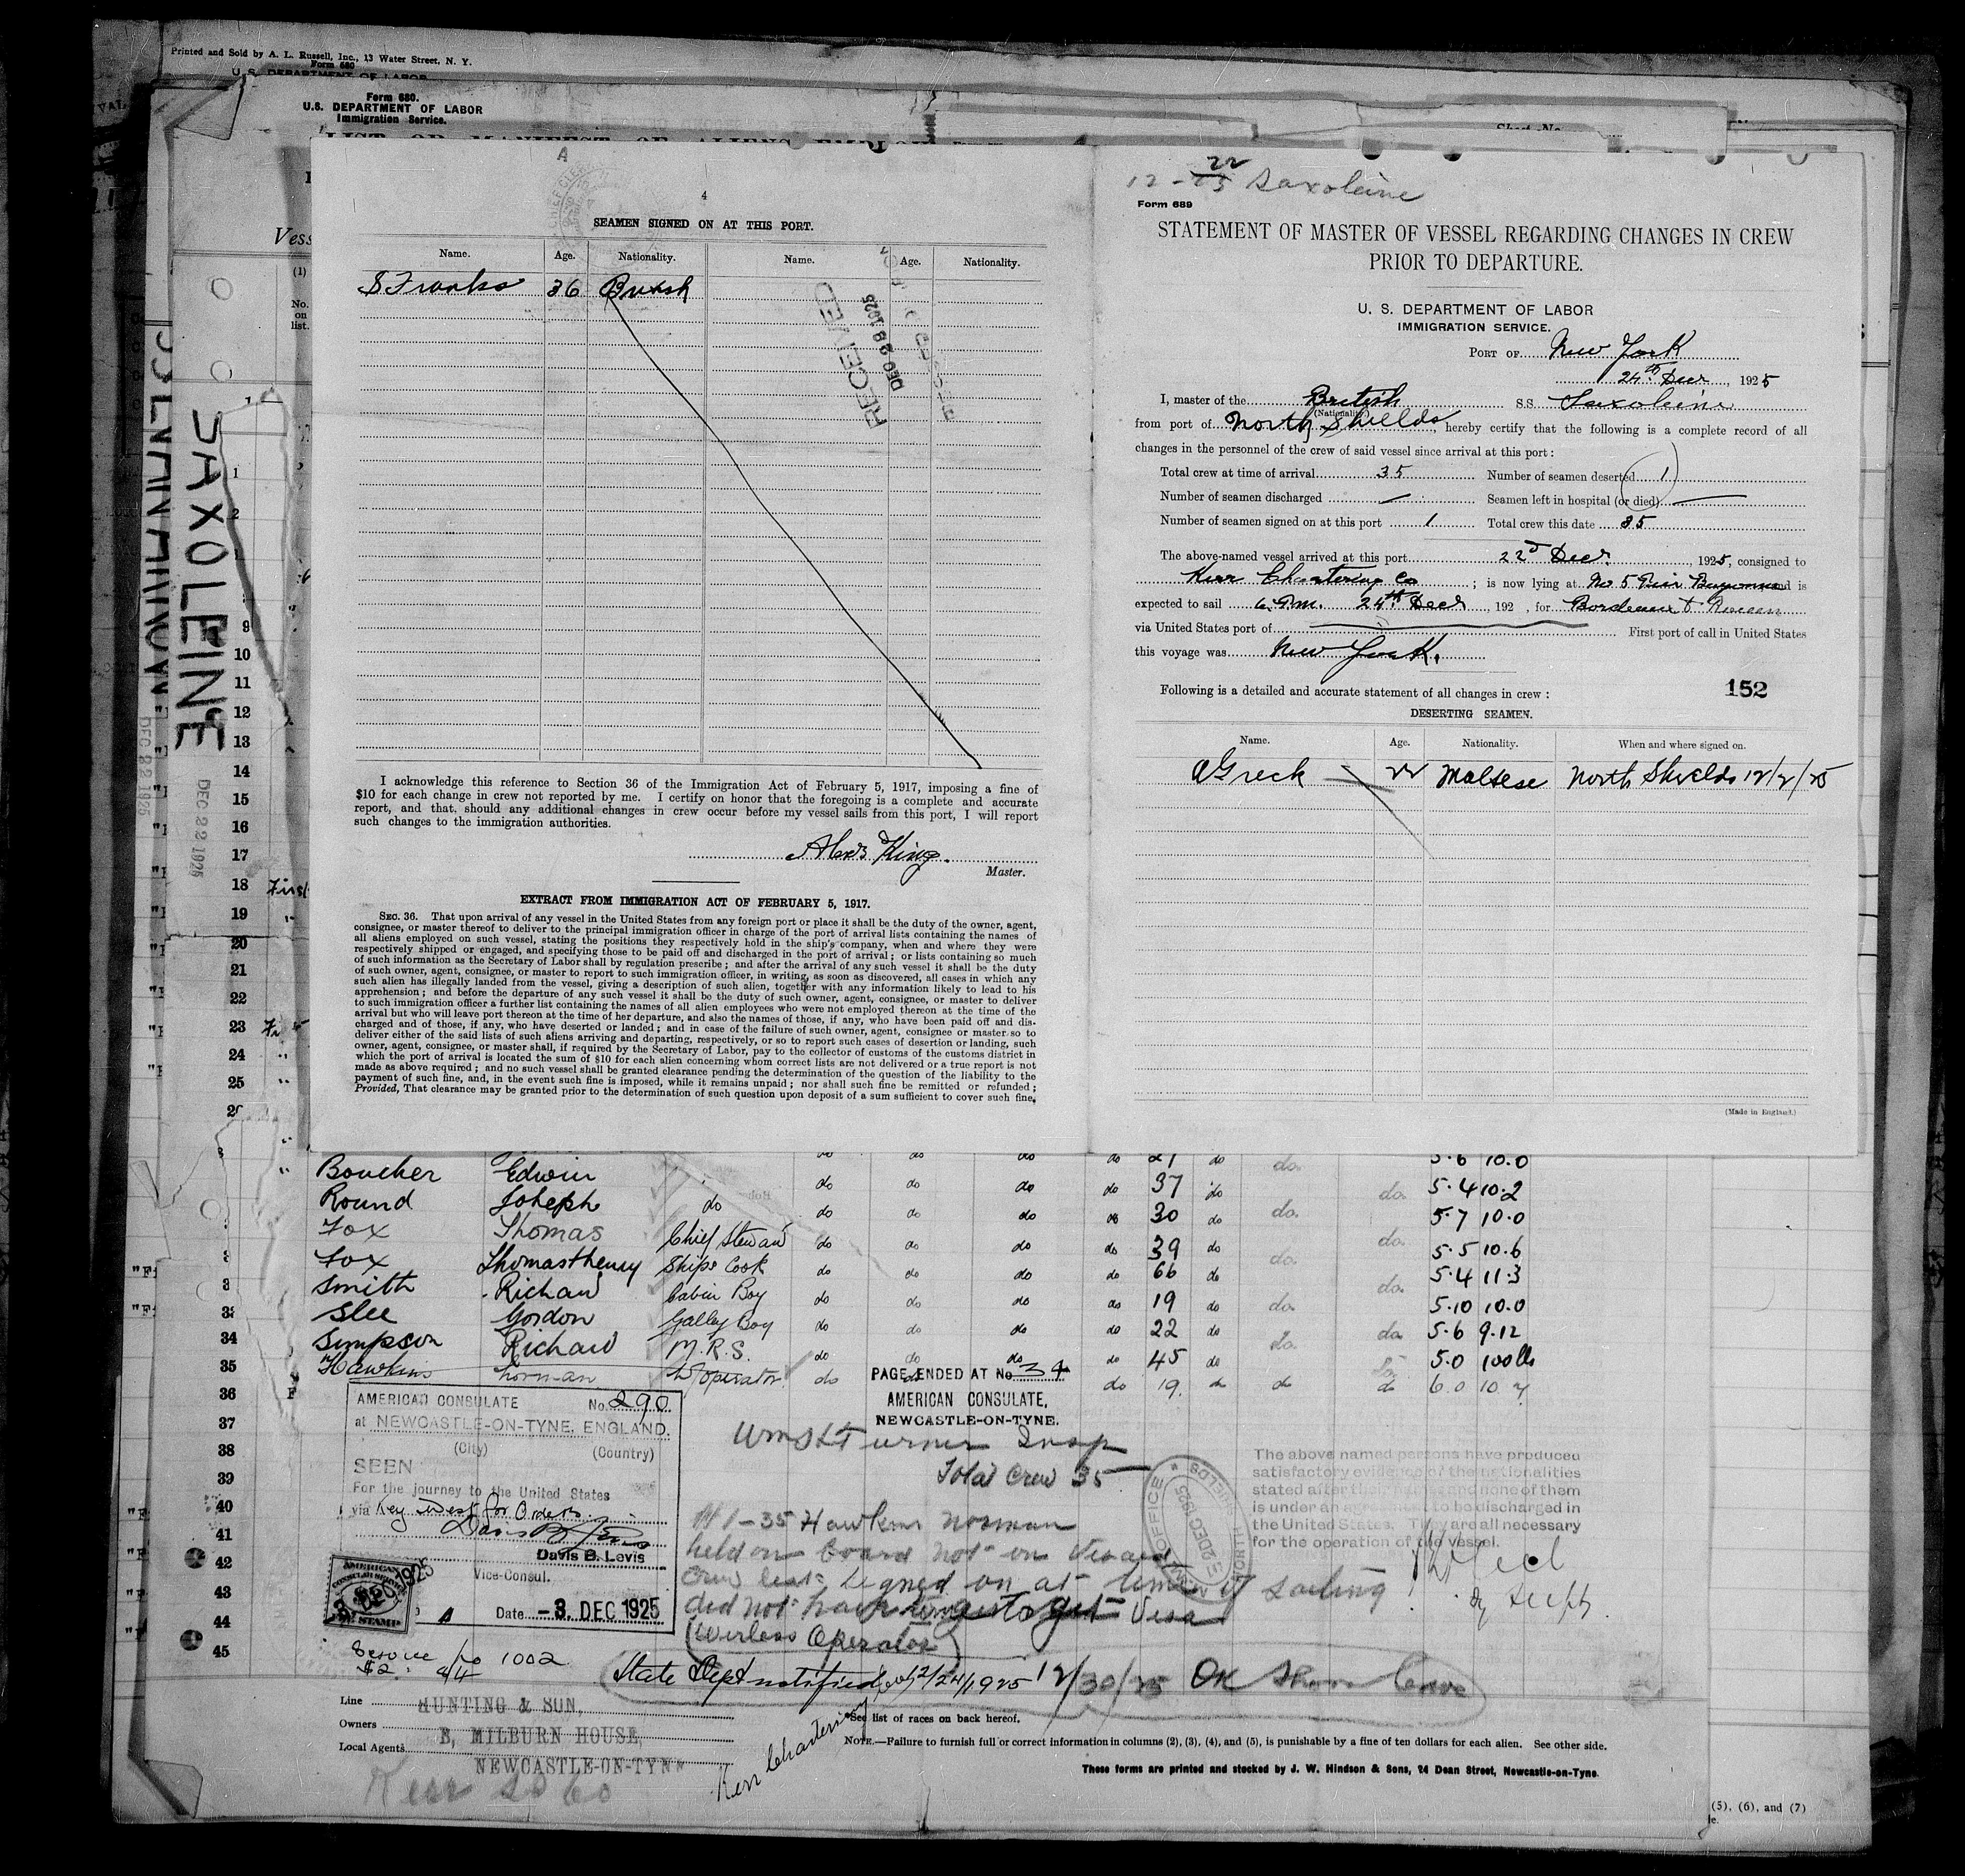 Printed and Sold by A. L. Russell, Inc., 13 Water Street, N. Y.
Form 680
U.S. DEPARTMENT OF LABOR
Form 680.
U.S. DEPARTMENT OF LABOR
Immigration Service.
LIST OR MANIFEST OF ALIENS EMPLOY
Sheet No.
SAXOLEINE
DEC 22 1925
DEC 22 1925
4
SEAMEN SIGNED ON AT THIS PORT.
Name. Age. Nationality. Name. Age. Nationality.
S Franks 36 British
RECEIVED
DEC 28 1925
I acknowledge this reference to Section 36 of the Immigration Act of February 5, 1917, imposing a fine of
$10 for each change in crew not reported by me. I certify on honor that the foregoing is a complete and accurate
report, and that should any additional changes in crew occur before my vessel sails from this port, I will report
such changes to the immigration authorities.
King.
Master.
EXTRACT FROM IMMIGRATION ACT OF FEBRUARY 5, 1917.
SEC. 36. That upon arrival of any vessel in the United States from any foreign port or place it shall be the duty of the owner, agent,
consignee, or master thereof to deliver to the principal immigration officer in charge of the port of arrival lists containing the names of
all aliens employed on such vessel, stating the positions they respectively hold in the ship's company, when and where they were
respectively shipped or engaged, and specifying those to be paid off and discharged in the port of arrival; or lists containing so much
of such information as the Secretary of Labor shall by regulation prescribe; and after the arrival of any such vessel it shall be the duty
of such owner, agent, consignee, or master to report to such immigration officer, in writing, as soon as discovered, all cases in which any
such alien has illegally landed from the vessel, giving a description of such alien, together with any information likely to lead to his
apprehension; and before the departure of any such vessel it shall be the duty of such owner, agent, consignee, or master to deliver
to such immigration officer a further list containing the names of all alien employees who were not employed thereon at the time of the
arrival but who will leave port thereon at the time of her departure, and also the names of those, if any, who have been paid off and dis-
charged and of those, if any, who have deserted or landed; and in case of the failure of such owner, agent, consignee or master so to
deliver either of the said lists of such aliens arriving and departing, respectively, or so to report such cases of desertion or landing, such
owner, agent, consignee, or master shall, if required by the Secretary of Labor, pay to the collector of customs of the customs district in
which the port of arrival is located the sum of $10 for each alien concerning whom correct lists are not delivered or a true report is not
made as above required; and no such vessel shall be granted clearance pending the determination of the question of the liability to the
payment of such fine, and, in the event such fine is imposed, while it remains unpaid; nor shall such fine be remitted or refunded;
Provided, That clearance may be granted prior to the determination of such question upon deposit of a sum sufficient to cover such fine.
22
12-25 Saxoleine
Form 689
STATEMENT OF MASTER OF VESSEL REGARDING CHANGES IN CREW
PRIOR TO DEPARTURE.
U. S. DEPARTMENT OF LABOR
IMMIGRATION SERVICE.
PORT OF New York
24th Decr, 1925
I, master of the British SS. Saxoleine
(Nationality)
from port of North Shields, hereby certify that the following is a complete record of all
changes in the personnel of the crew of said vessel since arrival at this port:
Total crew at time of arrival 35 Number of seamen deserted 1
Number of seamen discharged — Seamen left in hospital (or died) —
Number of seamen signed on at this port 1 Total crew this date 35
The above-named vessel arrived at this port 22d Decr., 1925, consigned to
Kerr Chartering Co; is now lying at No. 5 Pier Bayonne and is
expected to sail 6. P.m. 24th Decr, 192 , for Bordeaux & Rouen
via United States port of First port of call in United States
this voyage was New York.
Following is a detailed and accurate statement of all changes in crew:
152
DESERTING SEAMEN.
Name. Age. Nationality. When and where signed on.
A Greck 22 Maltese North Shields 12/2/25
(Made in England.)
Boucher Edwin do do do do 37 do do 5.4 10.2
Round Joheph do do do do do 30 do do 5.7 10.0
Fox Thomas Chief Steward do do do do 39 do do 5.5 10.6
Fox Thomas Henry Ships Cook do do do do 66 do do 5.4 11.3
Smith Richard Cabin Boy do do do do 19 do do 5.10 10.0
Slee Gordon Galley Boy do do do do 22 do do 5.6 9.12
34 Simpson Richard M.R.S. do do do do 45 do 5.0 100 lbs
35 Hawkins Norman W operator do do do 19. do do do 6.0 10.7
PAGE ENDED AT No 34
AMERICAN CONSULATE,
NEWCASTLE-ON-TYNE.
AMERICAN CONSULATE No. 290
at NEWCASTLE-ON-TYNE, ENGLAND.
(City) (Country)
SEEN
For the journey to the United States
via Key West for Orders
Davis B. Levis
Vice-Consul.
Date -3. DEC 1925
Turner Insp
Total Crew 35
The above named persons have produced
satisfactory evidence of the nationalities
stated after their names and none of them
is under an agreement to be discharged in
the United States. They are all necessary
for the operation of the vessel.
# 1-35 Hawkins Norman
held on board not on Visaed
Crew list signed on at time of sailing
did not have time to get Visa
(Wireless Operator)
Service No 1002
$2.
State Dept notified 12/24/1925 12/30/25 OK Shore leave
Line HUNTING & SON,
Owners B, MILBURN HOUSE,
Local Agents NEWCASTLE-ON-TYNE
Kerr SS Co
Kerr Chartering
*See list of races on back hereof.
NOTE.—Failure to furnish full or correct information in columns (2), (3), (4), and (5), is punishable by a fine of ten dollars for each alien. See other side.
These forms are printed and stocked by J. W. Hindson & Sons, 24 Dean Street, Newcastle-on-Tyne.
(5), (6), and (7)